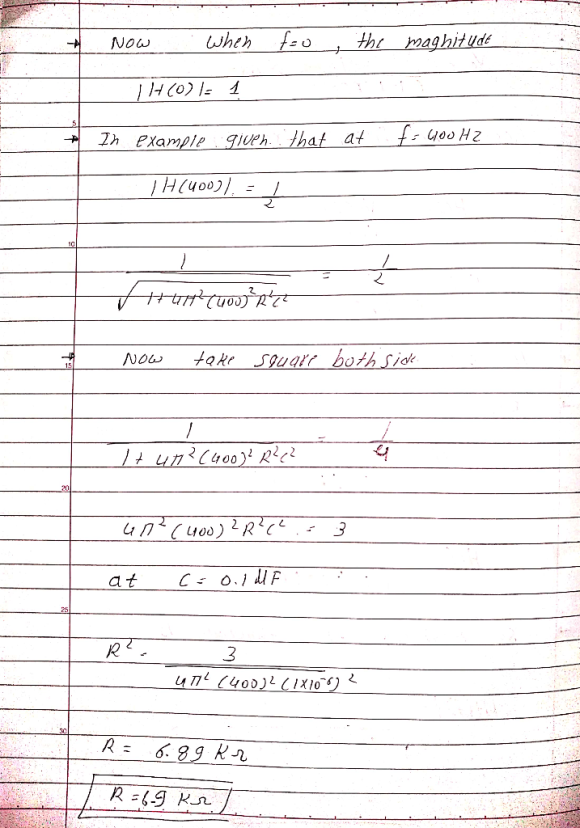 → Now when f=0 , the maghitude
|H(0)|= 1
5
→ In example given that at f=400Hz
|H(400)| = 1/2
10
1/√(1+4π²(400)²R²C²) = 1/2
→ Now take square both side
15
1/(1+4π²(400)²R²C²) = 1/4
20
4π²(400)²R²C² = 3
at C= 0.1 μF
25
R² = 3/(4π²(400)²(1X10⁻⁶)²)
30
R = 6.89 KΩ
R=6.9 KΩ